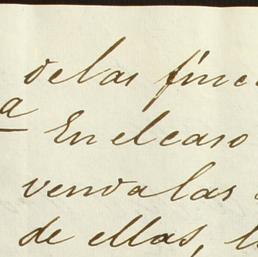 de las
a En el caso
venda las
de ellas,